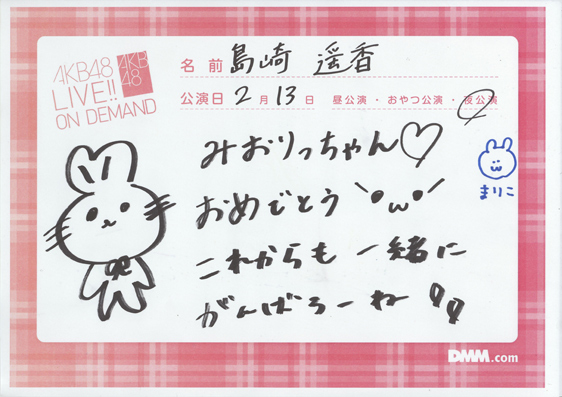 AKB48
LIVE!!
ON DEMAND
AKB
48
名前 島崎 遥香
公演日 2月13日 昼公演・おやつ公演・夜公演
みおりっちゃん♡
おめでとう
これからも一緒に
がんばろーね
まりこ
DMM.com